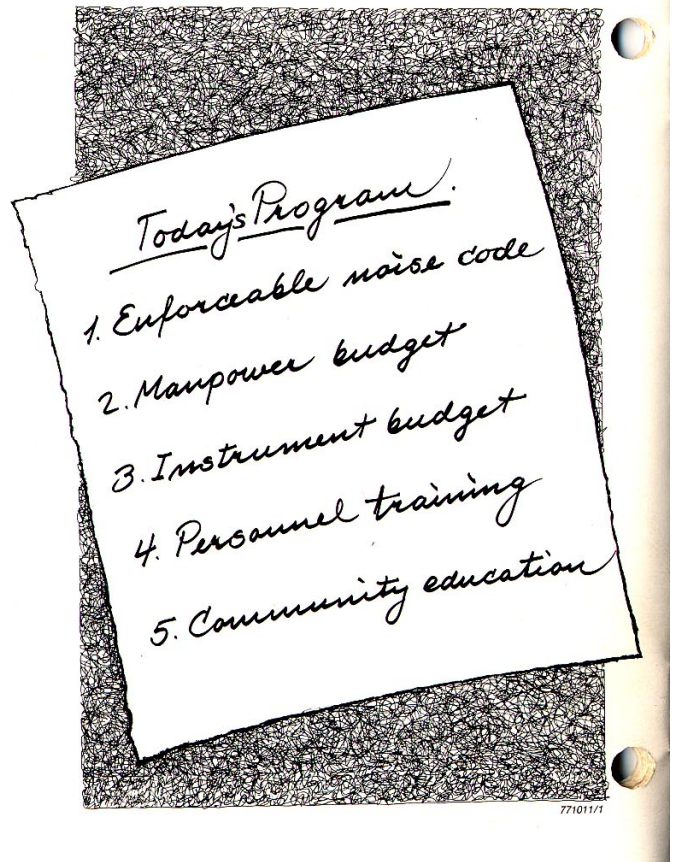 Today's Program.
1. Enforceable noise code
2. Manpower budget
3. Instrument budget
4. Personnel training
5. Community education
771011/1